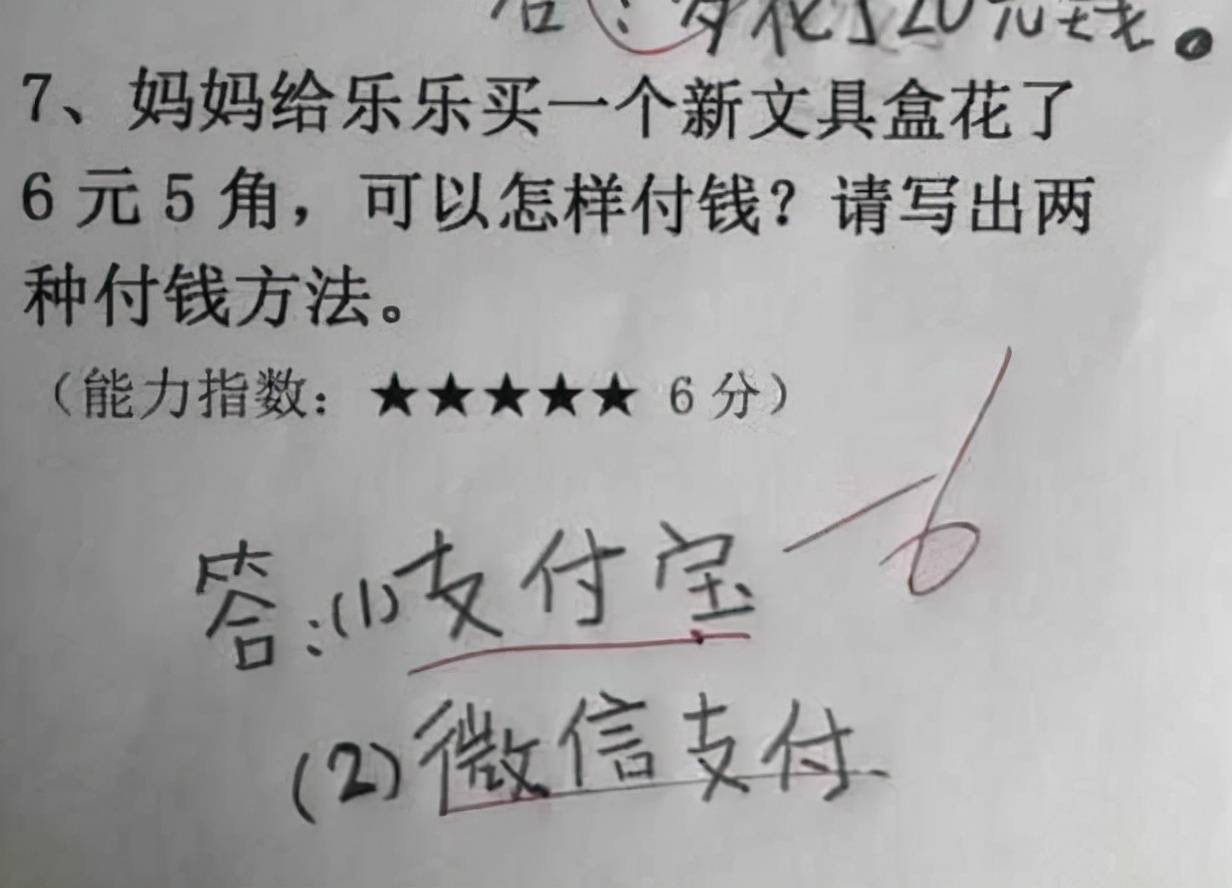 答：爷花了20元钱。
7、妈妈给乐乐买一个新文具盒花了
6元5角，可以怎样付钱？请写出两
种付钱方法。
（能力指数：★★★★★ 6分）
答：(1)支付宝 -6
(2)微信支付.